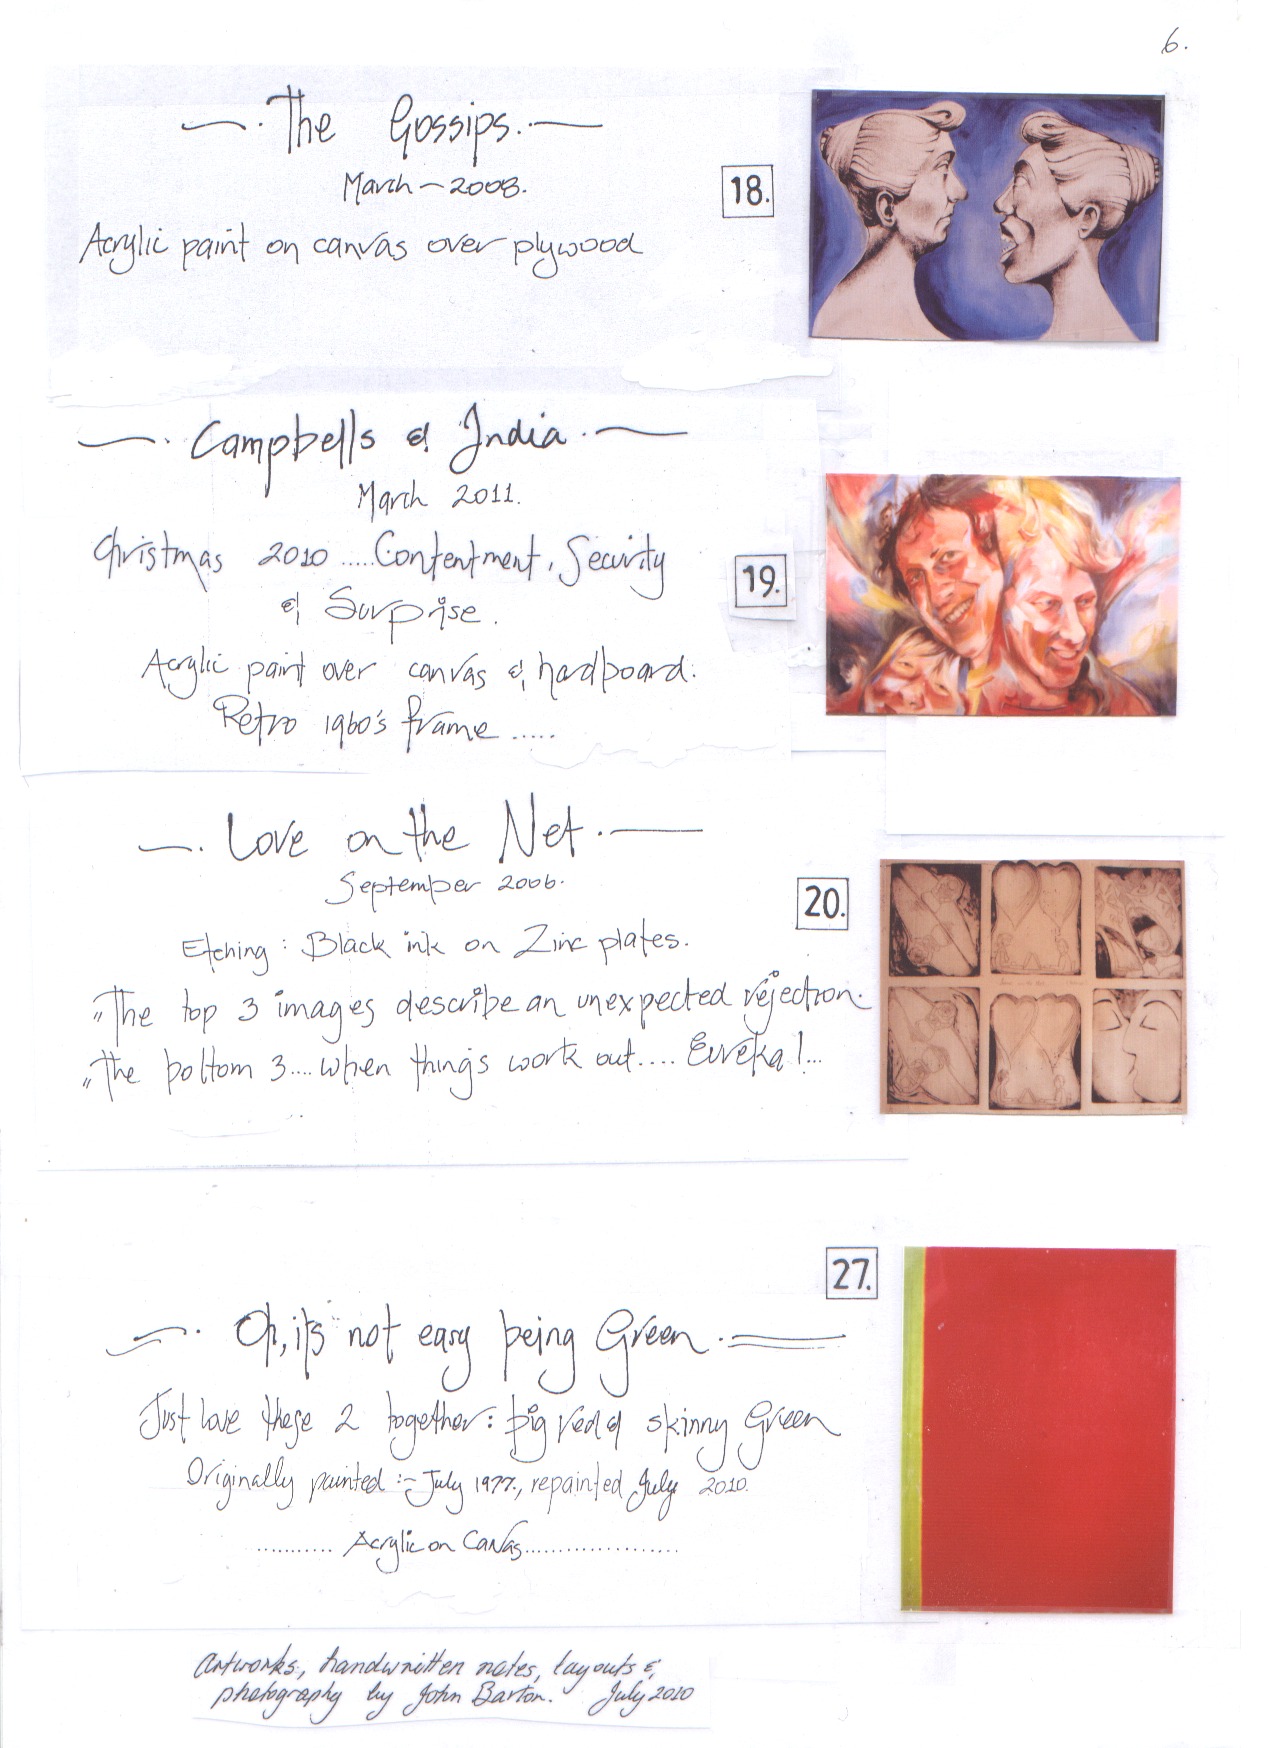 6.
The Gossips.
March - 2008.
18.
Acrylic paint on canvas over plywood
Campbells & India
March 2011.
Christmas 2010 ..... Contentment, Security
& Surprise.
19.
Acrylic paint over canvas & hardboard.
Retro 1960's frame .....
Love on the Net
September 2006.
20.
Etching : Black ink on Zinc plates.
"The top 3 images describe an unexpected rejection.
"The bottom 3.... when things work out.... Eureka!...
27.
Oh, it's not easy being Green
Just love these 2 together: big red & skinny Green
Originally painted :- July 1977, repainted July 2010.
........... Acrylic on Canvas....................
Artworks, handwritten notes, layouts &
photography by John Barton. July 2010